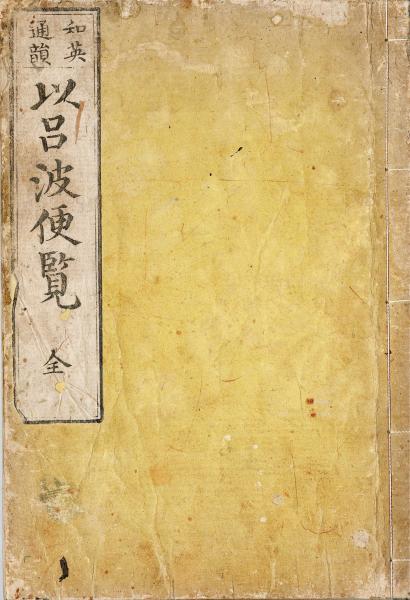 和英
通韻
以呂波便覧
全